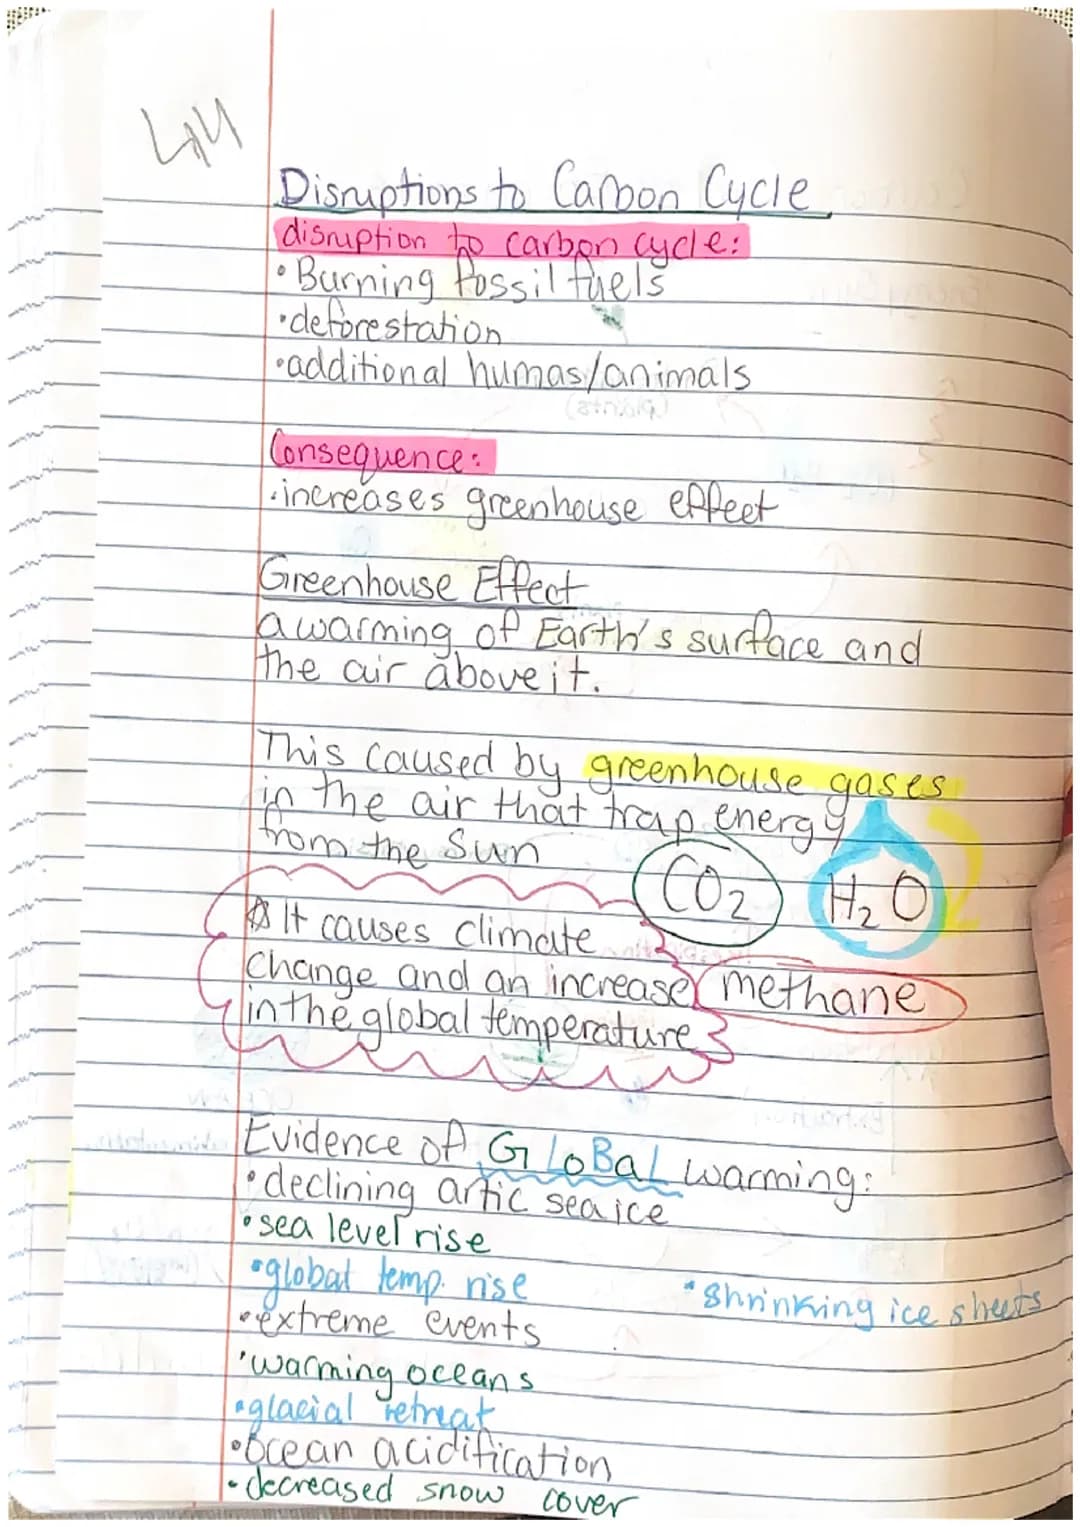 Disruptions to Carbon Cycle
disruption to carbon cycle:
• Burning fossil fuels
• deforestation
• additional humas/animals
Consequence:
• increases greenhouse effect
Greenhouse Effect
a warming of Earth's surface and
the air above it.
This caused by greenhouse gases
in the air that trap energy
from the Sun
CO2
H2O
It causes climate
change and an increase
in the global temperature
methane
Evidence of GLoBaL warming:
• declining artic sea ice
• sea level rise
• global temp. rise
• shrinking ice sheets
• extreme events
• warming oceans
• glacial retreat
• Ocean acidification
• decreased snow cover